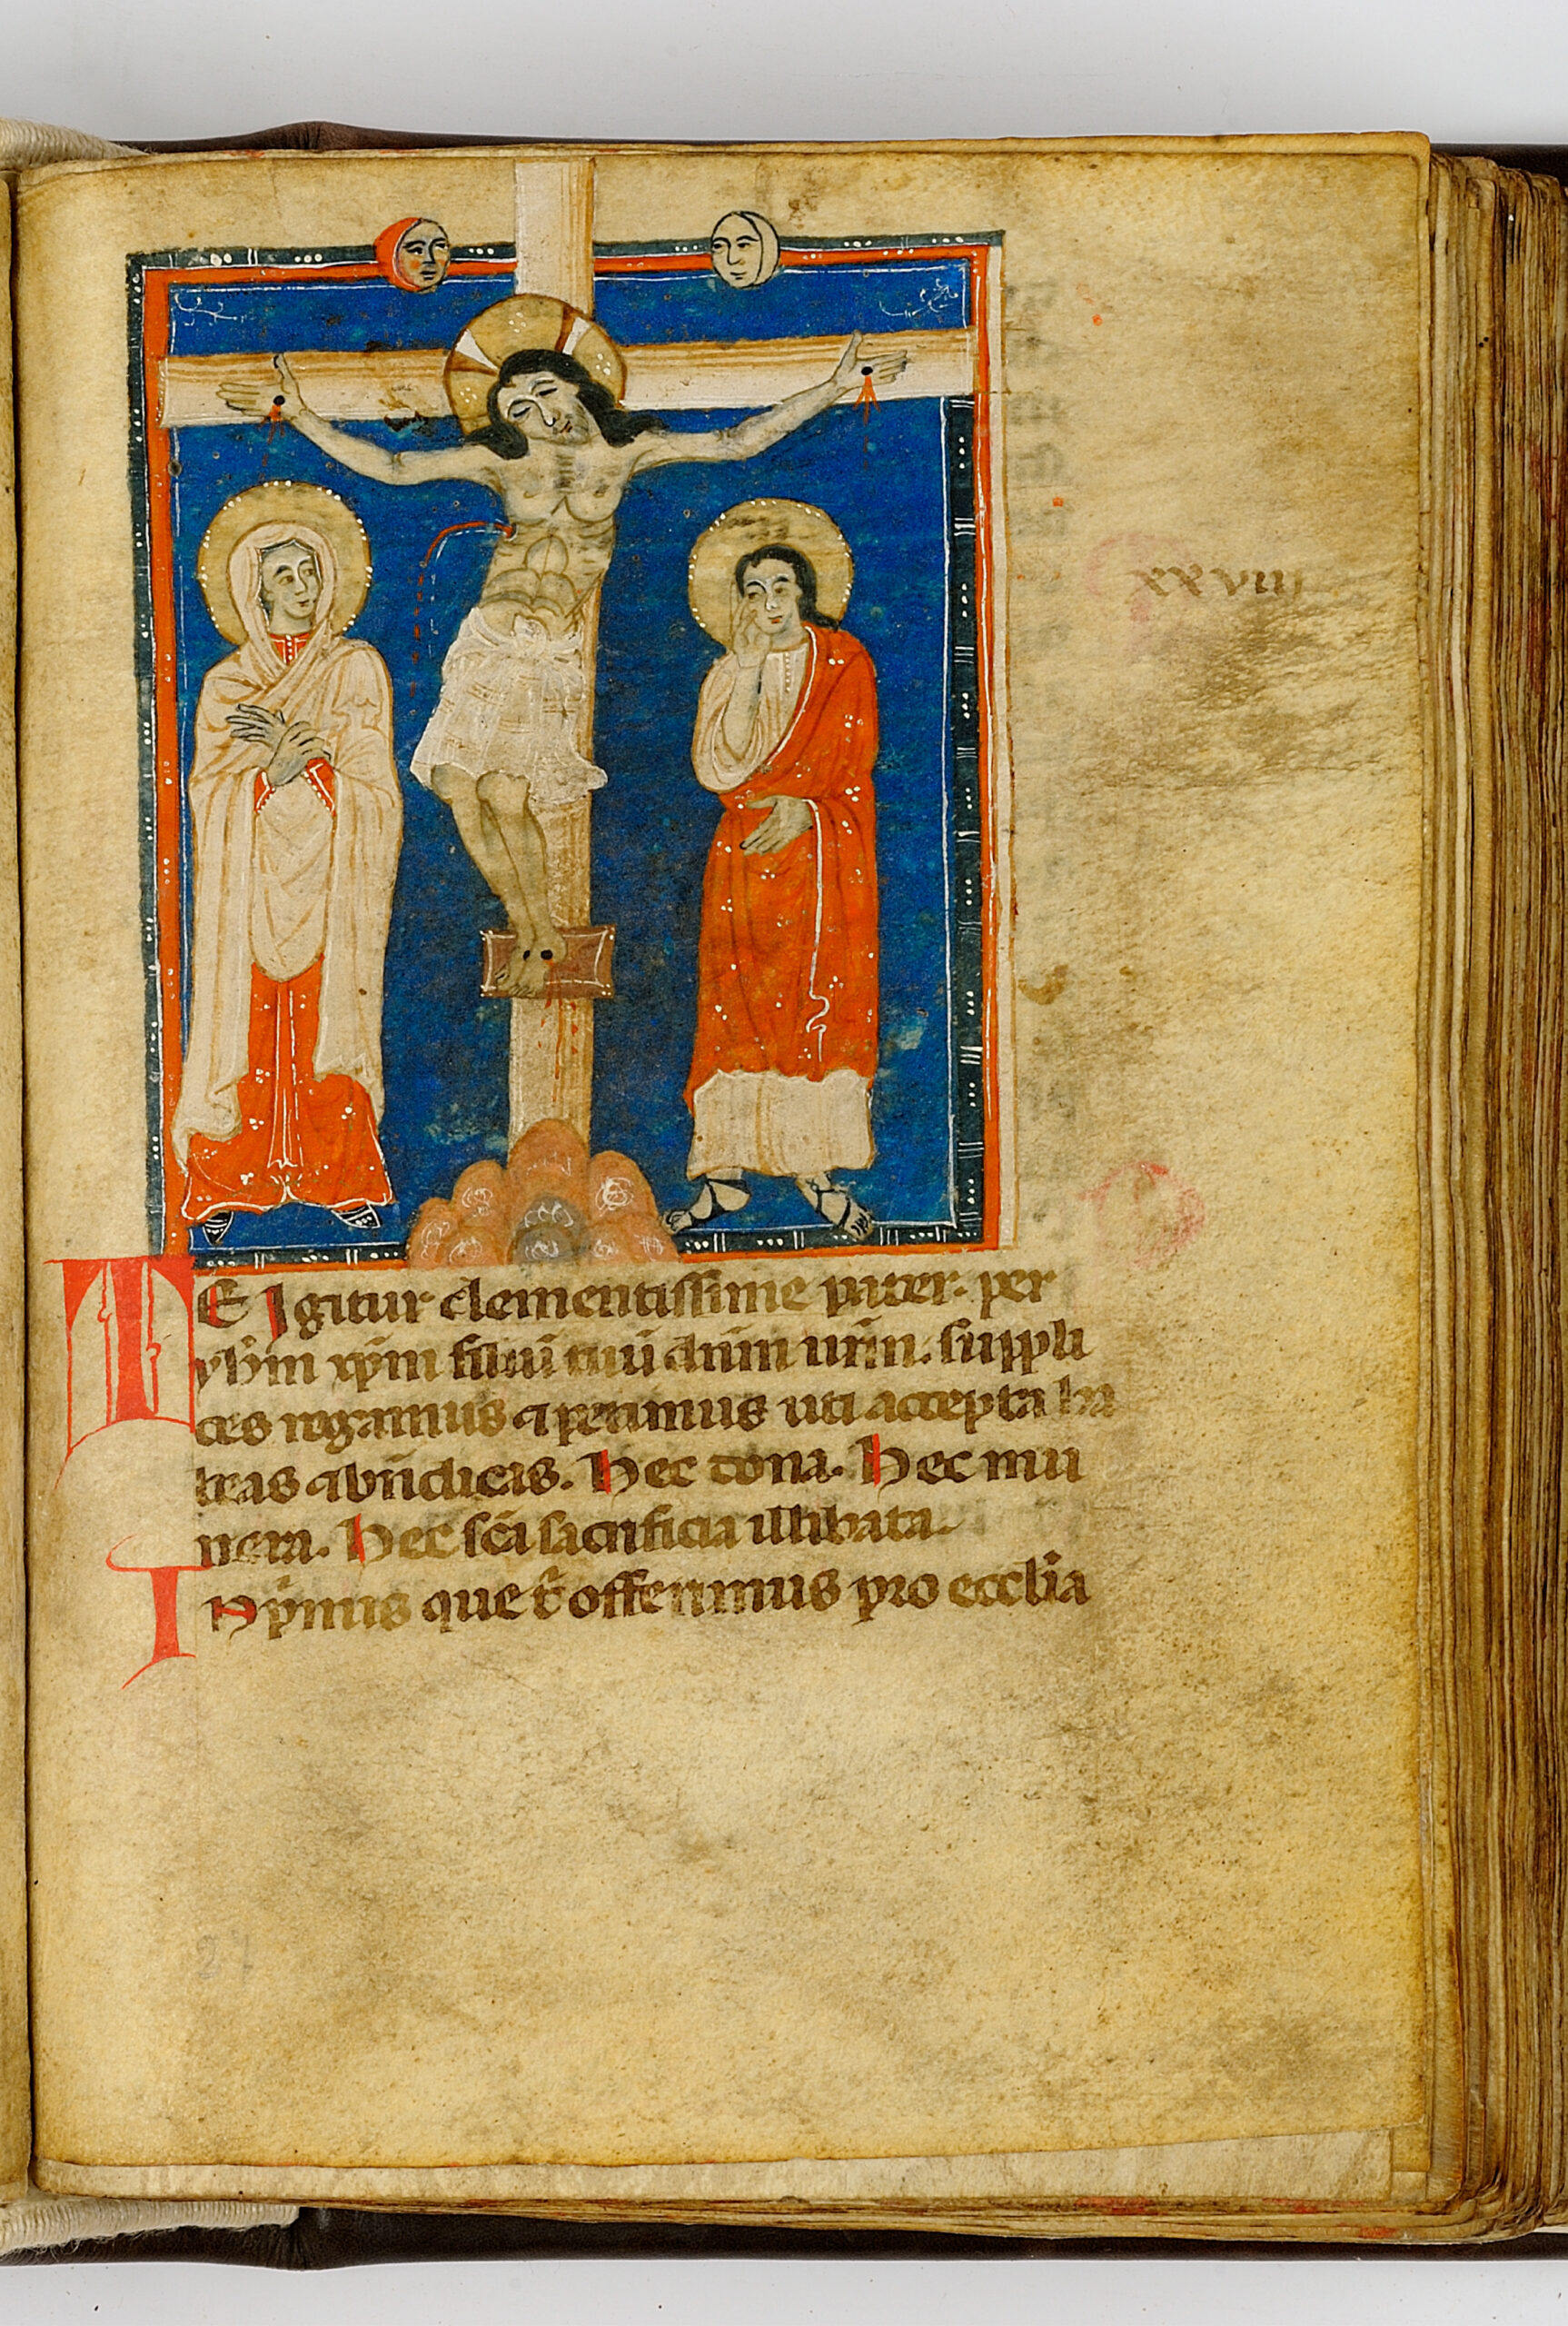 xxviiij
TE Igitur clementissime pater. per
yh̄m xp̄m filiū tuū dn̄m nr̄m. suppli
ces rogamus ⁊ petimus uti accepta ha
beas ⁊ bn̄dicas. Hec dona. Hec mu
nera. Hec sc̄a sacrificia illibata.
INp̄mis que t̄ offerimus pro eccl̄ia
27